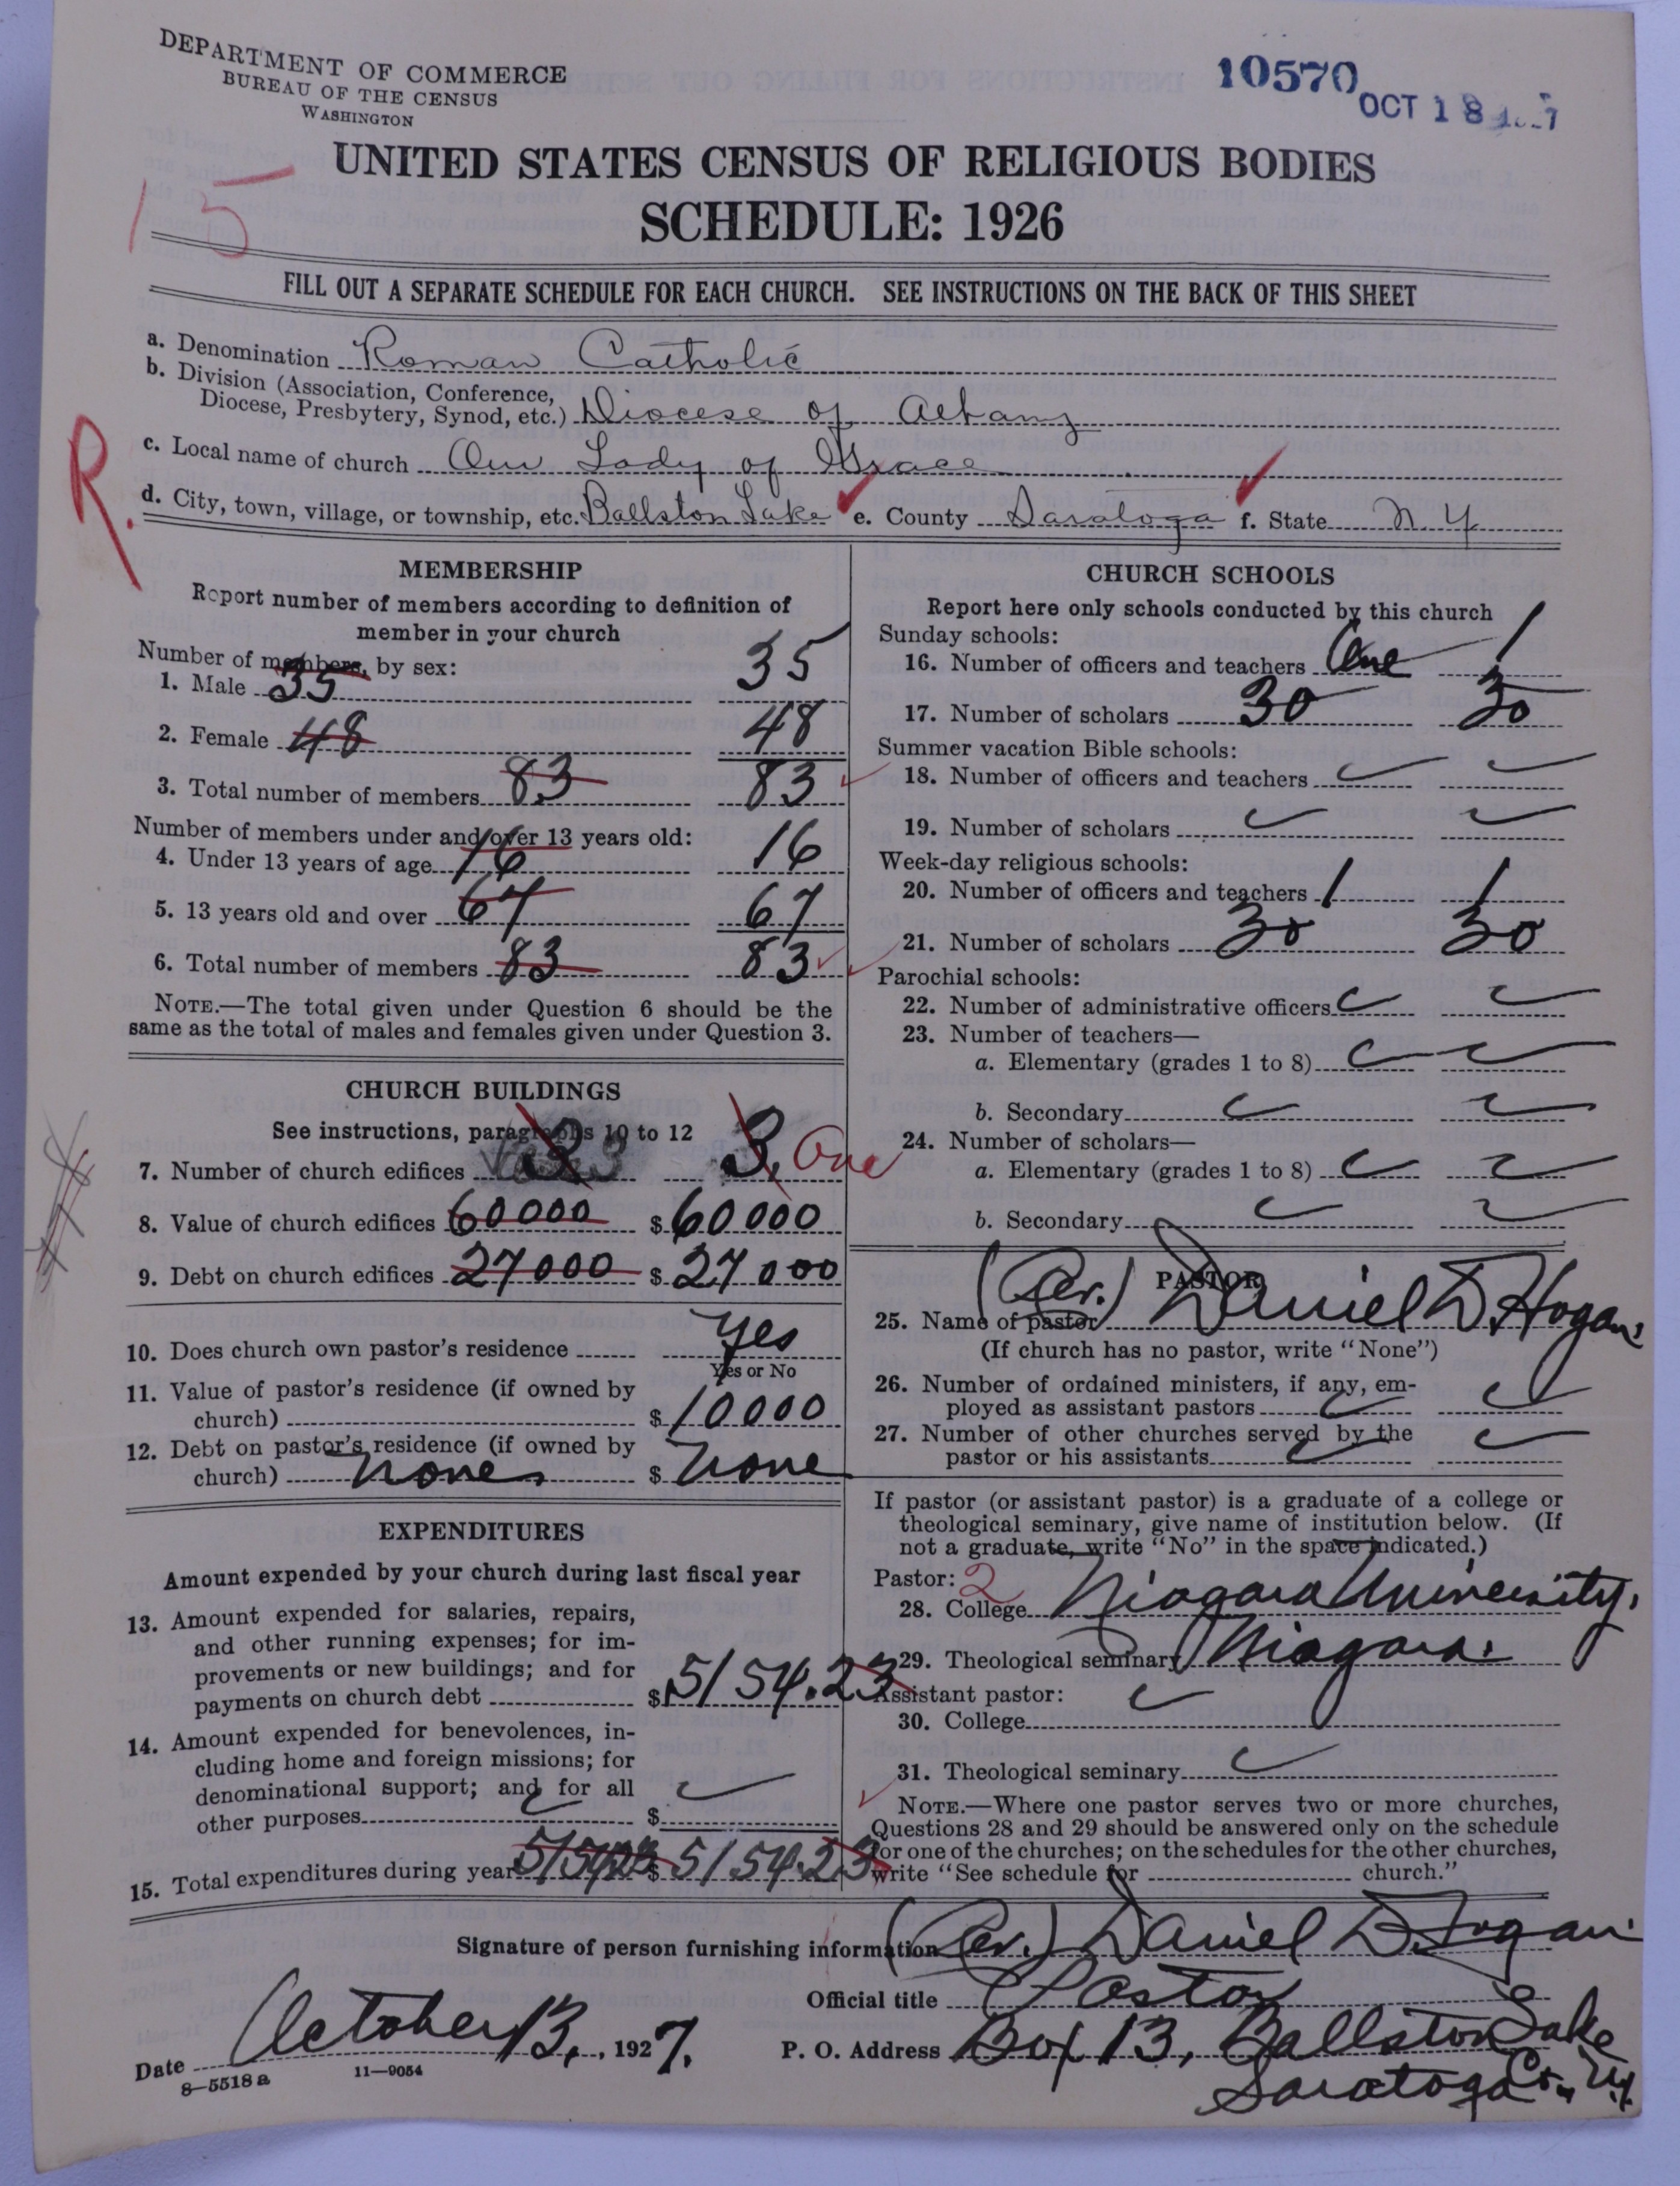 DEPARTMENT OF COMMERCE
BUREAU OF THE CENSUS
WASHINGTON
10570
OCT 18
UNITED STATES CENSUS OF RELIGIOUS BODIES
SCHEDULE: 1926
15
FILL OUT A SEPARATE SCHEDULE FOR EACH CHURCH. SEE INSTRUCTIONS ON THE BACK OF THIS SHEET
a. Denomination Roman Catholic
b. Division (Association, Conference,
Diocese, Presbytery, Synod, etc.) Diocese of Albany
c. Local name of church Our Lady of Grace
R.
d. City, town, village, or township, etc. Ballston Lake e. County Saratoga f. State N.Y
MEMBERSHIP
Report number of members according to definition of
member in your church
Number of members, by sex:
1. Male 35 35
2. Female 48 48
3. Total number of members 83 83
Number of members under and over 13 years old:
4. Under 13 years of age 16 16
5. 13 years old and over 67 67
6. Total number of members 83 83
NOTE.—The total given under Question 6 should be the
same as the total of males and females given under Question 3.
CHURCH BUILDINGS
See instructions, paragraphs 10 to 12
7. Number of church edifices 3 3. One
8. Value of church edifices 60000 $60000
9. Debt on church edifices 27000 $27000
10. Does church own pastor's residence Yes
Yes or No
11. Value of pastor's residence (if owned by
church) $10000
12. Debt on pastor's residence (if owned by
church) none $ none
EXPENDITURES
Amount expended by your church during last fiscal year
13. Amount expended for salaries, repairs,
and other running expenses; for im-
provements or new buildings; and for
payments on church debt $5154.23
14. Amount expended for benevolences, in-
cluding home and foreign missions; for
denominational support; and for all
other purposes $
15. Total expenditures during year 5154.23 $5154.23
CHURCH SCHOOLS
Report here only schools conducted by this church
Sunday schools:
16. Number of officers and teachers One 1
17. Number of scholars 30 30
Summer vacation Bible schools:
18. Number of officers and teachers
19. Number of scholars
Week-day religious schools:
20. Number of officers and teachers 1 1
21. Number of scholars 30 30
Parochial schools:
22. Number of administrative officers
23. Number of teachers—
a. Elementary (grades 1 to 8)
b. Secondary
24. Number of scholars—
a. Elementary (grades 1 to 8)
b. Secondary
PASTOR
25. Name of pastor (Rev.) Daniel D. Hogan.
(If church has no pastor, write "None")
26. Number of ordained ministers, if any, em-
ployed as assistant pastors
27. Number of other churches served by the
pastor or his assistants
If pastor (or assistant pastor) is a graduate of a college or
theological seminary, give name of institution below. (If
not a graduate, write "No" in the space indicated.)
Pastor: 2
28. College Niagara University.
29. Theological seminary Niagara.
Assistant pastor:
30. College
31. Theological seminary
NOTE.—Where one pastor serves two or more churches,
Questions 28 and 29 should be answered only on the schedule
for one of the churches; on the schedules for the other churches,
write "See schedule for church."
Signature of person furnishing information (Rev.) Daniel D. Hogan.
Official title Pastor
Date October 13, 1927. P. O. Address Box 13, Ballston Lake
Saratoga Co. N.Y.
8—5518 a 11—9054